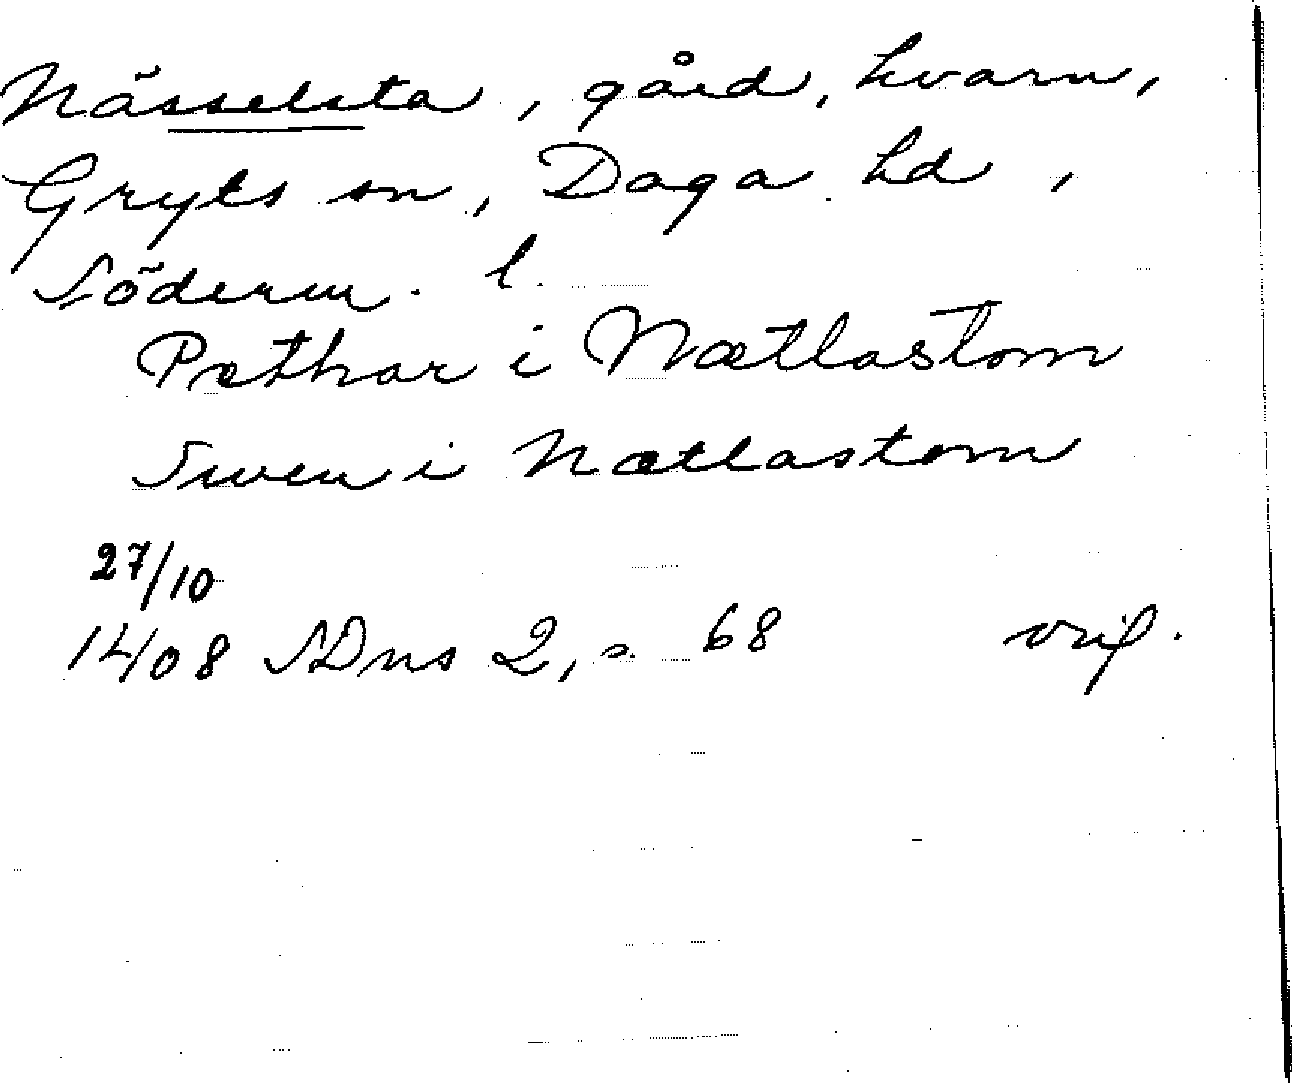 Nässelsta, gård, kvarn,
Gryts sn, Daga hd,
Söderm. l.
Pæthar i Nætlastom
Swen i Nætlastom
27/10
1408 SDns 2, s. 68 orig.